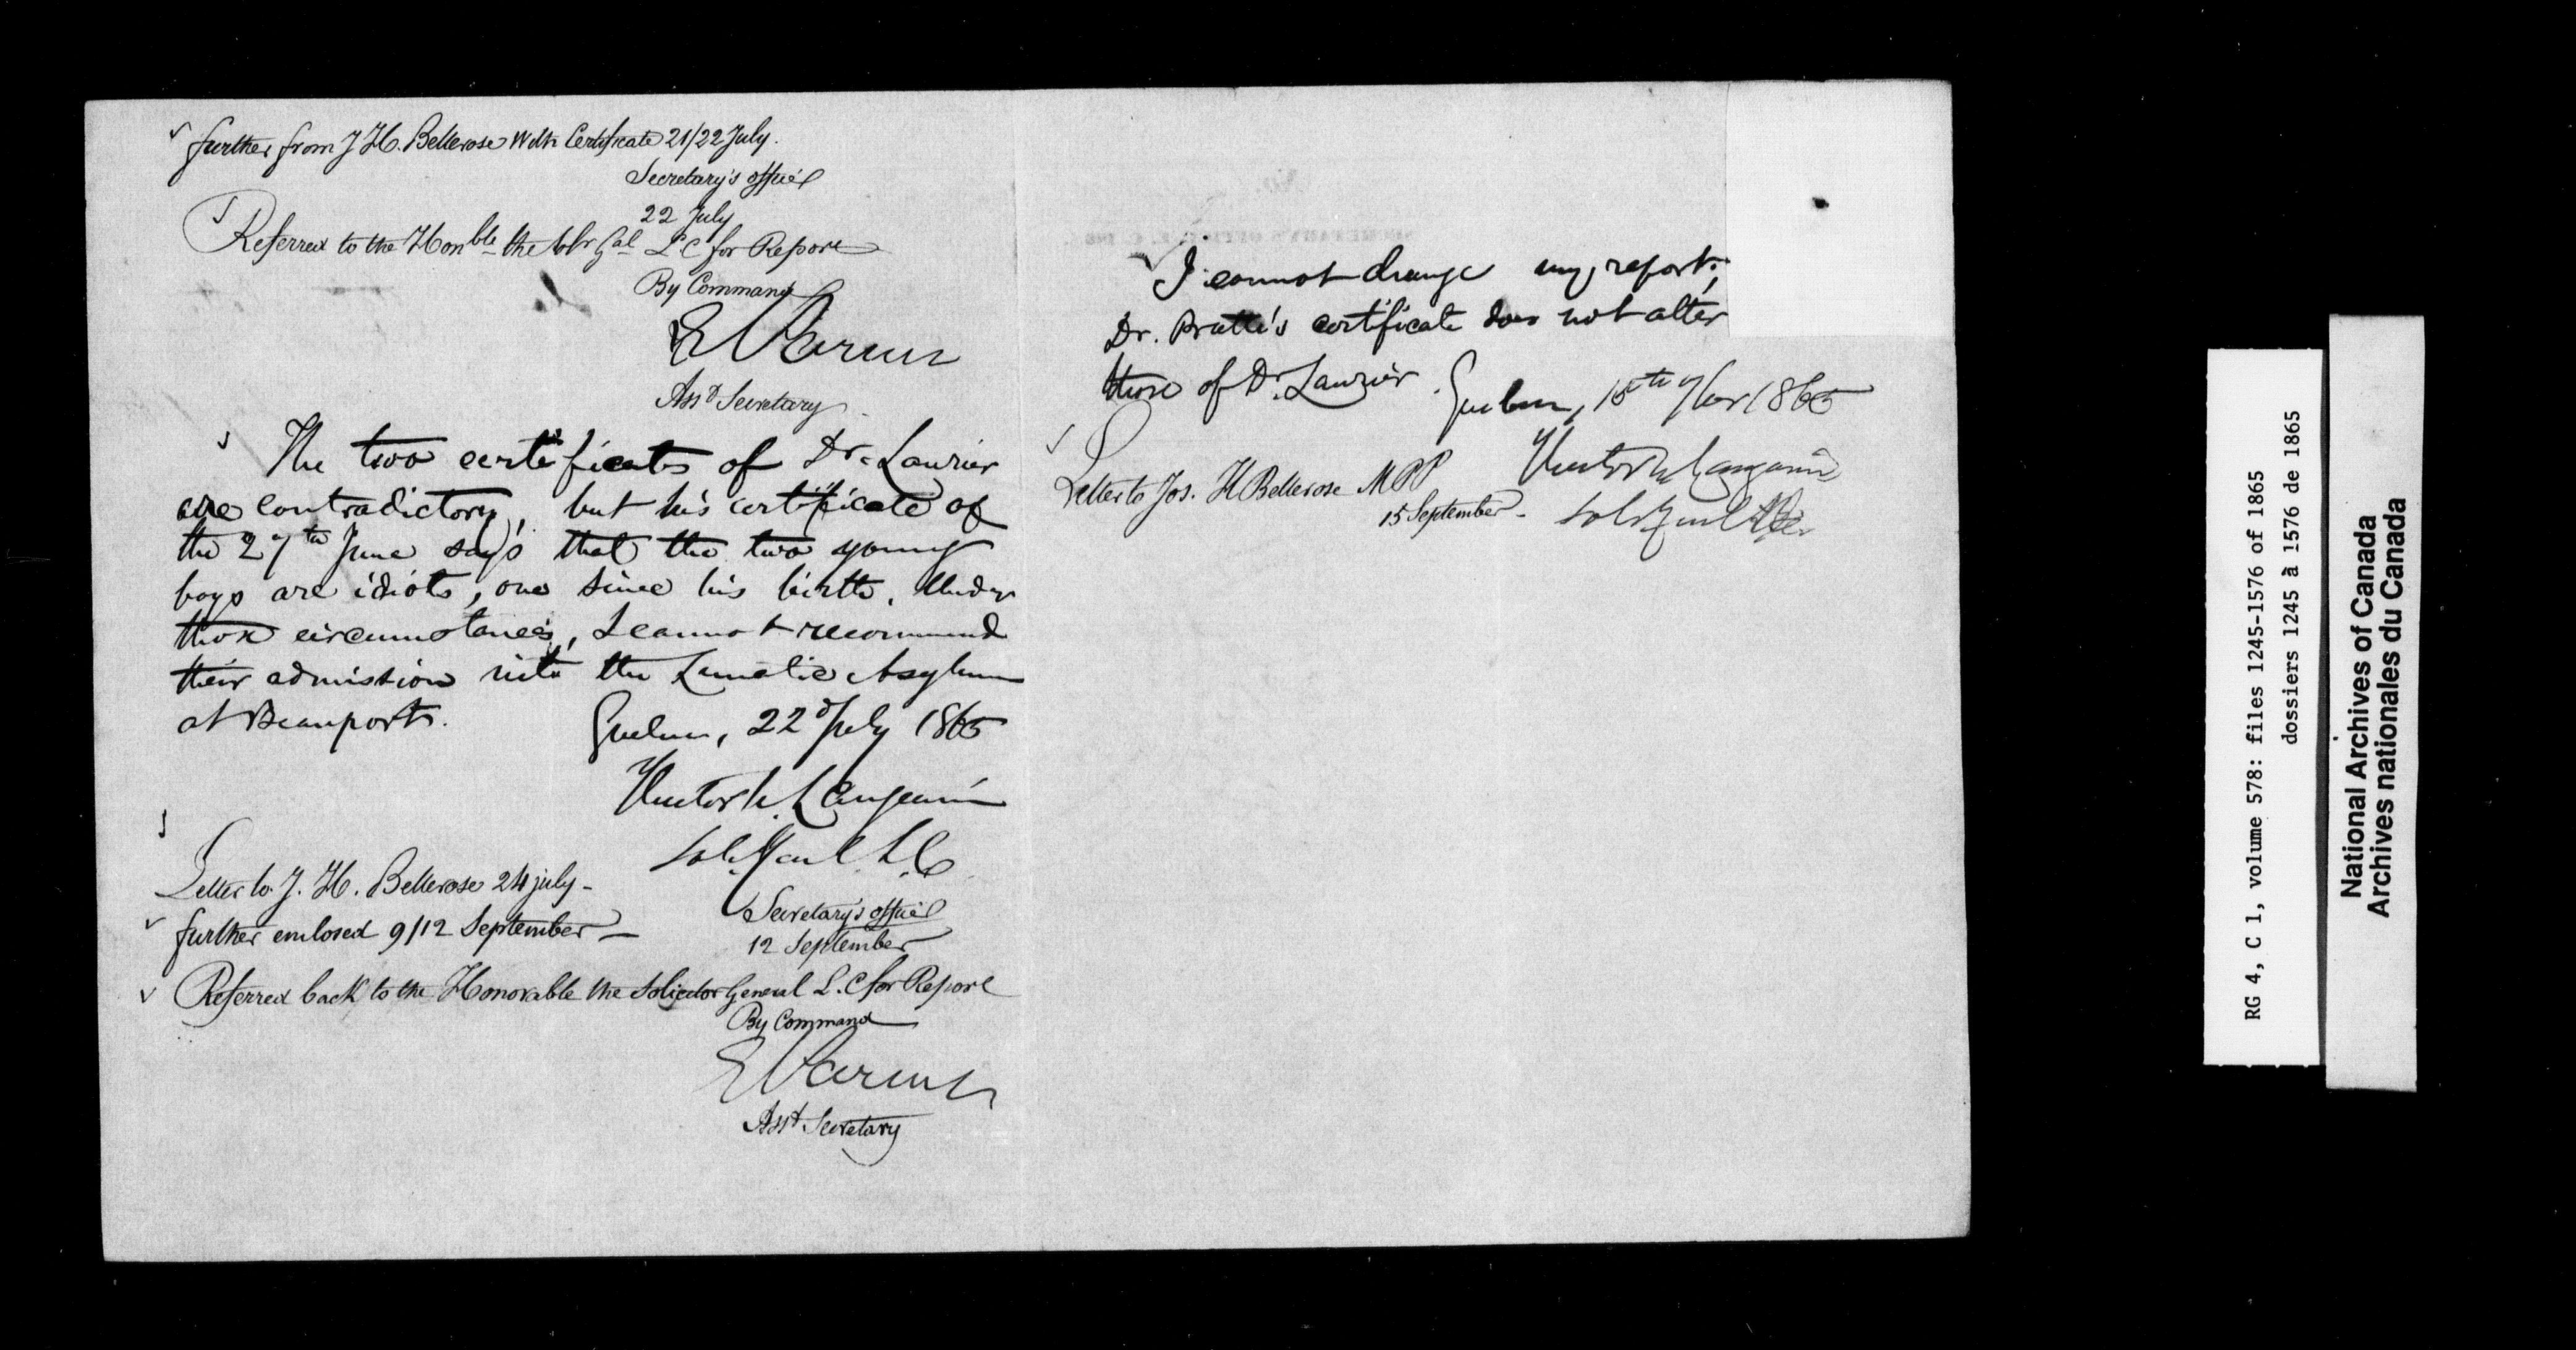 further from J H. Bellerose With Certificate 21/22 July.
Secretary's office
22 July
Referred to the Honble the Solr Gal L C for Report
By Command
E Parent
Asst Secretary
The two certificates of Dr. Laurier
are contradictory, but his certificate of
the 27th June says that the two young
boys are idiots, one since his birth. Under
those circumstances, I cannot recommend
their admission into the Lunatic Asylum
at Beauport.
Quebec, 22d July 1865
Hector L. Langevin
Sol. Genl L.C
Letter to J. H. Bellerose 24 july -
further enclosed 9/12 September -
Secretary's office
12 September
Referred back to the Honorable the Solicitor General L. C for Report
By Command
E Parent
Asst Secretary
I cannot change my report;
Dr. Pratte's certificate does not alter
those of Dr. Laurier.
Quebec, 15th 7ber 1865
Hector L Langevin
Sol Genl
Letter to Jos. H Bellerose M P P
15 September -
RG 4, C 1, volume 578: files 1245-1576 of 1865
dossiers 1245 à 1576 de 1865
National Archives of Canada
Archives nationales du Canada